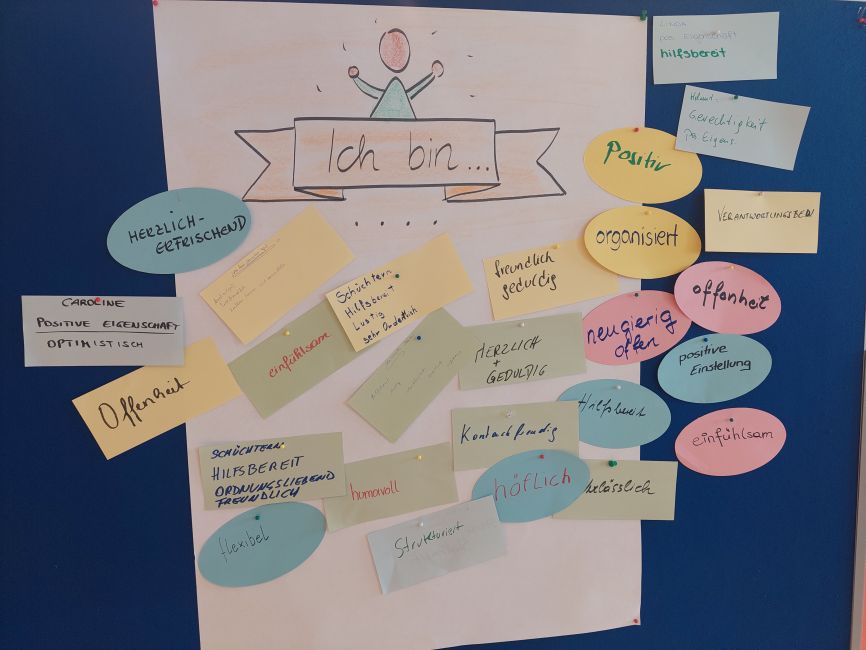 Ich bin...
pos Eigenschaft
hilfsbereit
Gerechtigkeit
Pos Eigens.
Positiv
HERZLICH-
ERFRISCHEND
VERANTWORTUNGSBEW
organisiert
freundlich
geduldig
Schüchtern
Hilfsbereit
Lustig
sehr Ordentlich
offenheit
CAROLINE
POSITIVE EIGENSCHAFT
OPTIMISTISCH
einfühlsam
neugierig
offen
HERZLICH
+
GEDULDIG
positive
Einstellung
Offenheit
Hilfsbereit
Kontaktfreudig
einfühlsam
SCHÜCHTERN
HILFSBEREIT
ORDNUNGSLIEBEND
FREUNDLICH
humorvoll
höflich
flexibel
Strukturiert